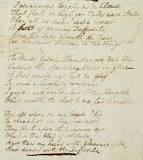 I wandered lonely as a Cloud
That floats on high o'er Vales and Hills
When all at once I saw a crowd
A host of dancing Daffodils
Along the Lake, beneath the trees
Ten thousand dancing in the breeze
The waves beside them danced, but they
Outdid the sparkling waves in glee
A Poet could not but be gay
In such a laughing company
I gaz'd and gaz'd but little thought
What wealth the shew to me had brought
For oft when on my couch I lie
In vacant or in pensive mood
They flash upon that inward eye
Which is the bliss of solitude
And then my heart with pleasure fills
And dances with the Daffodils